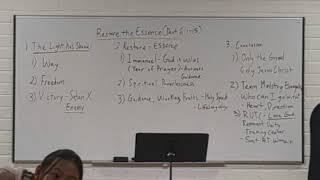 Restore the Essence (Part 6
1) The Light has Shone
1) Way
2) Freedom
3) Victory - Satan X
Enemy
2) Restore - Essence
1) Immanuel - God is with us
(Year of Prayer) - Answers
Guidance
2) Spiritual Powerlessness
3) Guidance, Working Fruits - Holy Spirit
3) Conclusion
1) Only the Gospel
Only Jesus Christ
2) Team Ministry
Who can I go with
Heart Direction
3) RUTC -
Remnant Unity
Training Center